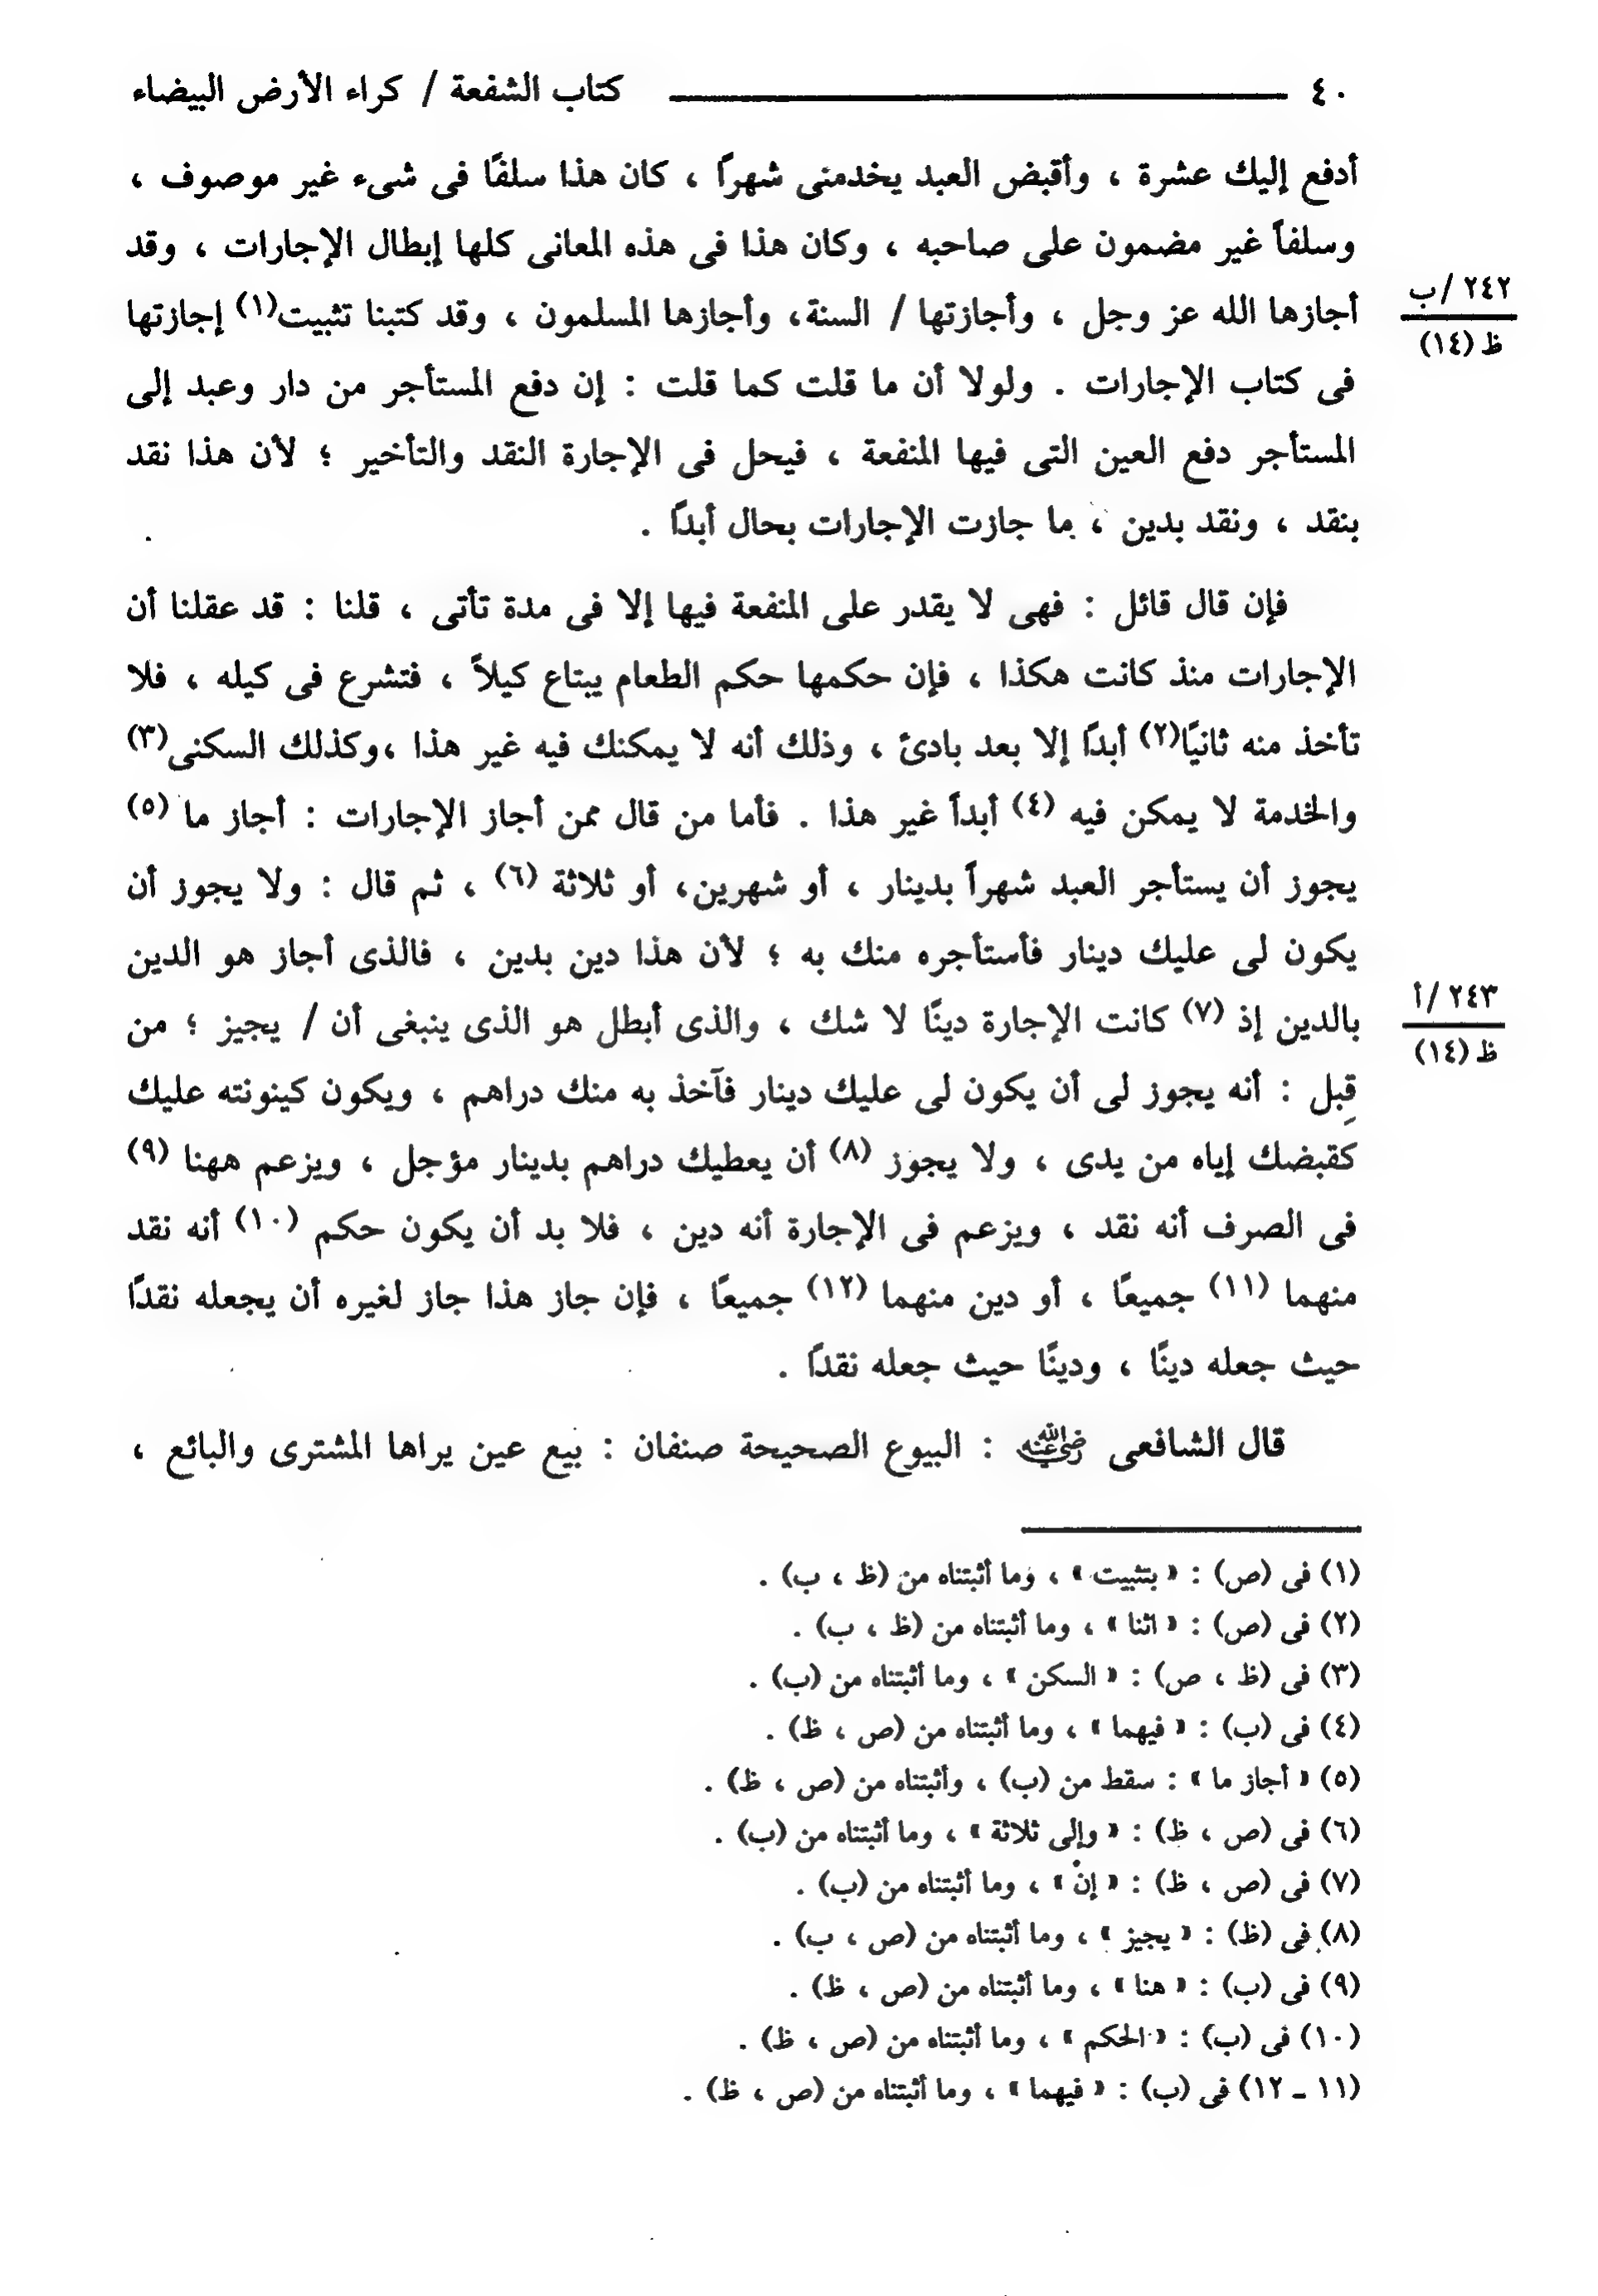 ٤٠ كتاب الشفعة / كراء الأرض البيضاء
أدفع إليك عشرة ، وأقبض العبد يخدمنى شهرًا ، كان هذا سلفًا فى شىء غير موصوف ،
وسلفاً غير مضمون على صاحبه ، وكان هذا فى هذه المعانى كلها إبطال الإجارات ، وقد
أجازها الله عز وجل ، وأجازتها / السنة، وأجازها المسلمون ، وقد كتبنا تثبيت(١) إجازتها
٢٤٢ /ب
ظ (١٤)
فى كتاب الإجارات . ولولا أن ما قلت كما قلت : إن دفع المستأجر من دار وعبد إلى
المستأجر دفع العين التى فيها المنفعة ، فيحل فى الإجارة النقد والتأخير ؛ لأن هذا نقد
بنقد ، ونقد بدين ، ما جازت الإجارات بحال أبدًا .
فإن قال قائل : فهى لا يقدر على المنفعة فيها إلا فى مدة تأتى ، قلنا : قد عقلنا أن
الإجارات منذ كانت هكذا ، فإن حكمها حكم الطعام يبتاع كيلاً ، فتشرع فى كيله ، فلا
تأخذ منه ثانيًا(٢) أبدًا إلا بعد بادئ ، وذلك أنه لا يمكنك فيه غير هذا ،وكذلك السكنى(٣)
والخدمة لا يمكن فيه (٤) أبداً غير هذا . فأما من قال ممن أجاز الإجارات : أجاز ما (٥)
يجوز أن يستأجر العبد شهراً بدينار ، أو شهرين، أو ثلاثة (٦) ، ثم قال : ولا يجوز أن
يكون لى عليك دينار فأستأجره منك به ؛ لأن هذا دين بدين ، فالذى أجاز هو الدين
بالدين إذ (٧) كانت الإجارة دينًا لا شك ، والذى أبطل هو الذى ينبغى أن / يجيز ؛ من
٢٤٣ /أ
ظ (١٤)
قِبل : أنه يجوز لى أن يكون لى عليك دينار فآخذ به منك دراهم ، ويكون كينونته عليك
كقبضك إياه من يدى ، ولا يجوز (٨) أن يعطيك دراهم بدينار مؤجل ، ويزعم ههنا (٩)
فى الصرف أنه نقد ، ويزعم فى الإجارة أنه دين ، فلا بد أن يكون حكم (١٠) أنه نقد
منهما (١١) جميعًا ، أو دين منهما (١٢) جميعًا ، فإن جاز هذا جاز لغيره أن يجعله نقدًا
حيث جعله دينًا ، ودينًا حيث جعله نقدًا .
قال الشافعى رضي الله عنه : البيوع الصحيحة صنفان : بيع عين يراها المشترى والبائع ،
(١) فى (ص) : « بتثبيت » ، وما أثبتناه من (ظ ، ب) .
(٢) فى (ص) : « اثنا » ، وما أثبتناه من (ظ ، ب) .
(٣) فى (ظ ، ص) : « السكن » ، وما أثبتناه من (ب) .
(٤) فى (ب) : « فيهما » ، وما أثبتناه من (ص ، ظ) .
(٥) « أجاز ما » : سقط من (ب) ، وأثبتناه من (ص ، ظ) .
(٦) فى (ص ، ظ) : « وإلى ثلاثة » ، وما أثبتناه من (ب) .
(٧) فى (ص ، ظ) : « إنْ » ، وما أثبتناه من (ب) .
(٨) فى (ظ) : « يجيز » ، وما أثبتناه من (ص ، ب) .
(٩) فى (ب) : « هنا » ، وما أثبتناه من (ص ، ظ) .
(١٠) فى (ب) : « الحكم » ، وما أثبتناه من (ص ، ظ) .
(١١ ـ ١٢) فى (ب) : « فيهما » ، وما أثبتناه من (ص ، ظ) .